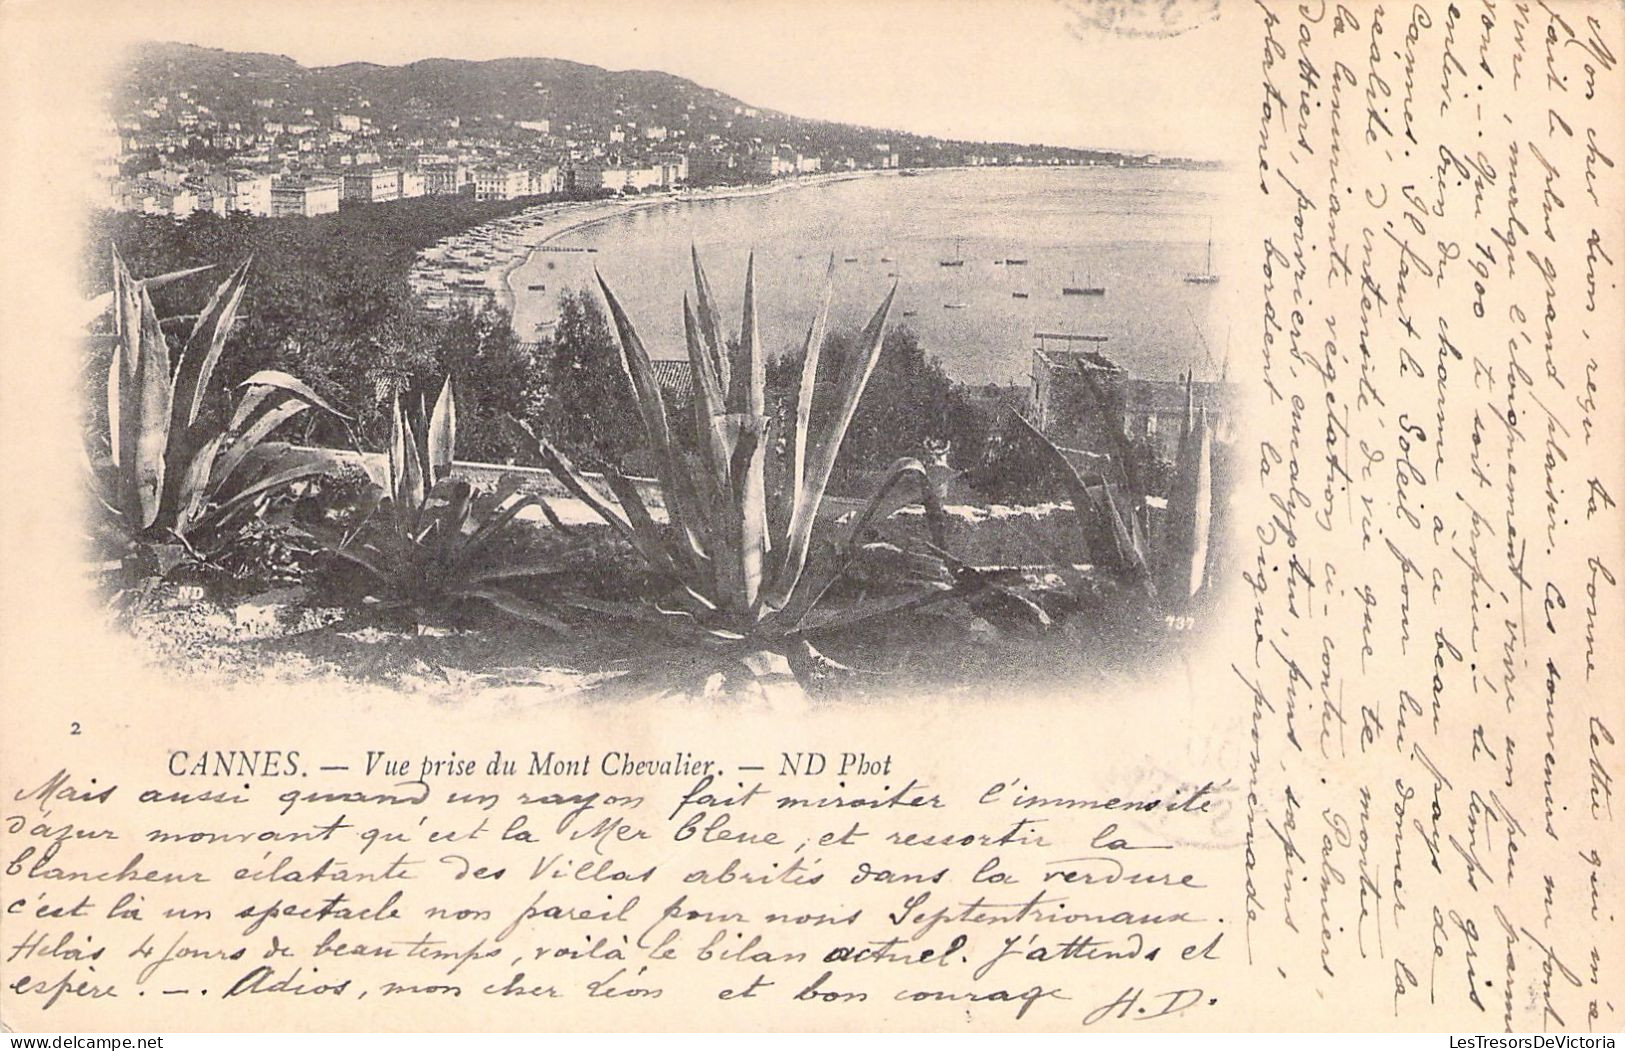 Mon cher Léon, reçu ta bonne lettre qui m'a
fait le plus grand plaisir. Ces souvenirs me font
vivre, malgré l'éloignement, vivre un peu parmi
vous. _ . Que 1900 te soit propice. Le temps gris
enlève bien du charme à ce beau pays de
Cannes. Il faut le Soleil pour lui donner la
réalité d'intensité de vie que te montre
la luxuriante végétation ci-contre. Palmiers,
dattiers, poivriers, eucalyptus, pins, sapins,
platanes bordent la digue promenade
2
CANNES. — Vue prise du Mont Chevalier. — ND Phot
ND
737
Mais aussi quand un rayon fait miroiter l'immensité
d'azur mouvant qu'est la Mer bleue, et ressortir la
blancheur éclatante des Villas abritées dans la verdure
c'est là un spectacle non pareil pour nous Septentrionaux.
Hélas 4 jours de beau temps, voilà le bilan actuel. J'attends et
espère. _ . Adios, mon cher Léon et bon courage H. D.
LesTresorsDeVictoria
www.delcampe.net